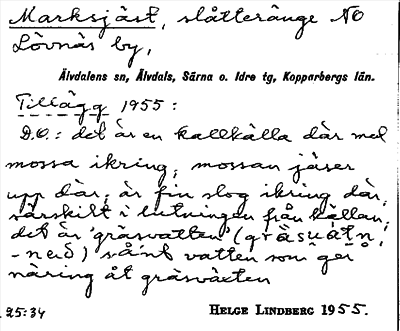 Marksjäst, slåtteränge NO
Lövnäs by,
Älvdalens sn, Älvdals, Särna o. Idre tg, Kopparbergs län.
Tillägg 1955 :
D.O.: det är en kallkälla där med
mossa ikring, mossan jäser
upp där; är fin slog ikring där,
särskilt i lutningen från källan;
det är 'gräsvatten' (
) sånt vatten som ger
näring åt gräsväxten
25:34
HELGE LINDBERG 1955.